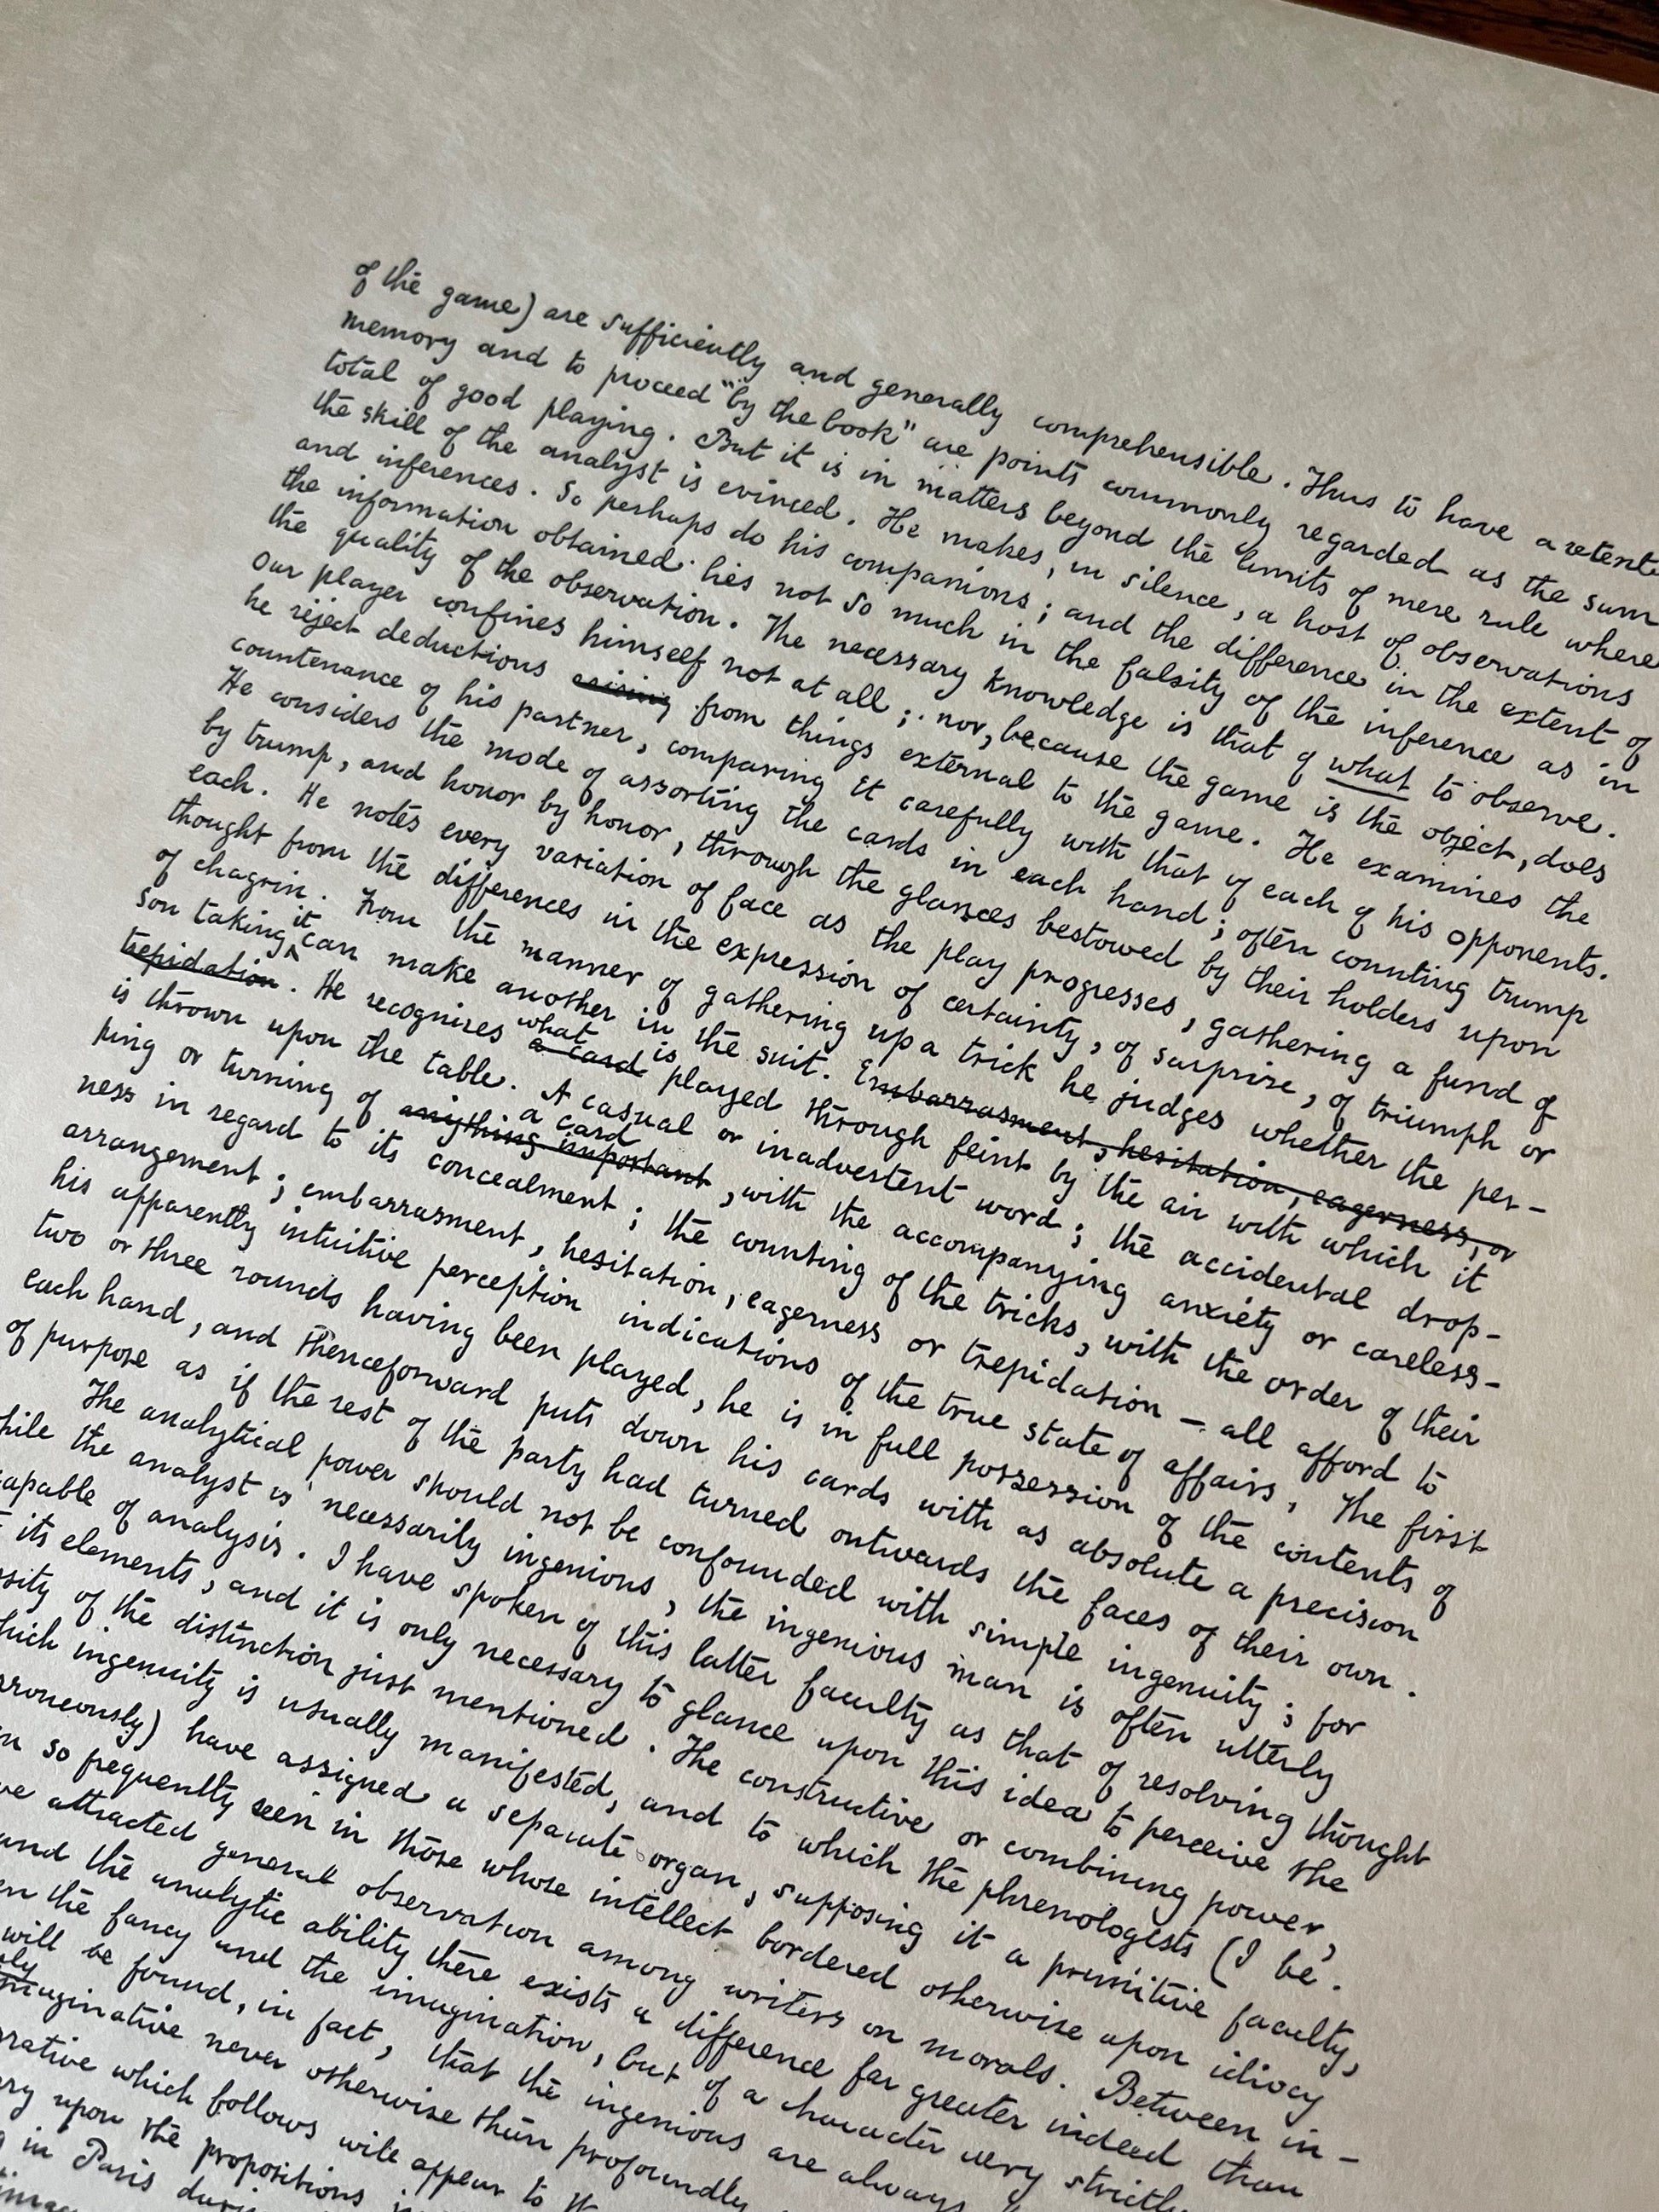 of the game) are sufficiently and generally comprehensible. Thus to have a retent
memory and to proceed "by the book" are points commonly regarded as the sum
total of good playing. But it is in matters beyond the limits of mere rule where
the skill of the analyst is evinced. He makes, in silence, a host of observations
and inferences. So perhaps do his companions; and the difference in the extent of
the information obtained lies not so much in the falsity of the inference as in
the quality of the observation. The necessary knowledge is that of what to observe.
Our player confines himself not at all; nor, because the game is the object, does
he reject deductions arising from things external to the game. He examines the
countenance of his partner, comparing it carefully with that of each of his opponents.
He considers the mode of assorting the cards in each hand; often counting trump
by trump, and honor by honor, through the glances bestowed by their holders upon
each. He notes every variation of face as the play progresses, gathering a fund of
thought from the differences in the expression of certainty, of surprise, of triumph or
of chagrin. From the manner of gathering up a trick he judges whether the per-
son taking it can make another in the suit. Embarrasment, hesitation, eagerness, or
trepidation. He recognises what a card is played through feint by the air with which it
is thrown upon the table. A casual or inadvertent word; the accidental drop-
ping or turning of anything important a card, with the accompanying anxiety or careless-
ness in regard to its concealment; the counting of the tricks, with the order of their
arrangement; embarrasment, hesitation, eagerness or trepidation – all afford to
his apparently intuitive perception indications of the true state of affairs. The first
two or three rounds having been played, he is in full possession of the contents of
each hand, and thenceforward puts down his cards with as absolute a precision
of purpose as if the rest of the party had turned outwards the faces of their own.
The analytical power should not be confounded with simple ingenuity; for
hile the analyst is necessarily ingenious, the ingenious man is often utterly
capable of analysis. I have spoken of this latter faculty as that of resolving thought
its elements, and it is only necessary to glance upon this idea to perceive the
ssity of the distinction just mentioned. The constructive or combining power,
hich ingenuity is usually manifested, and to which the phrenologists (I be-
rroneously) have assigned a separate organ, supposing it a primitive faculty,
n so frequently seen in those whose intellect bordered otherwise upon idiocy
ve attracted general observation among writers on morals. Between in-
and the analytic ability there exists a difference far greater indeed than
en the fancy and the imagination, but of a character very strictly
will be found, in fact, that the ingenious are always
ly imaginative never otherwise than profoundly
rrative which follows will appear to
ry upon the propositions
in Paris